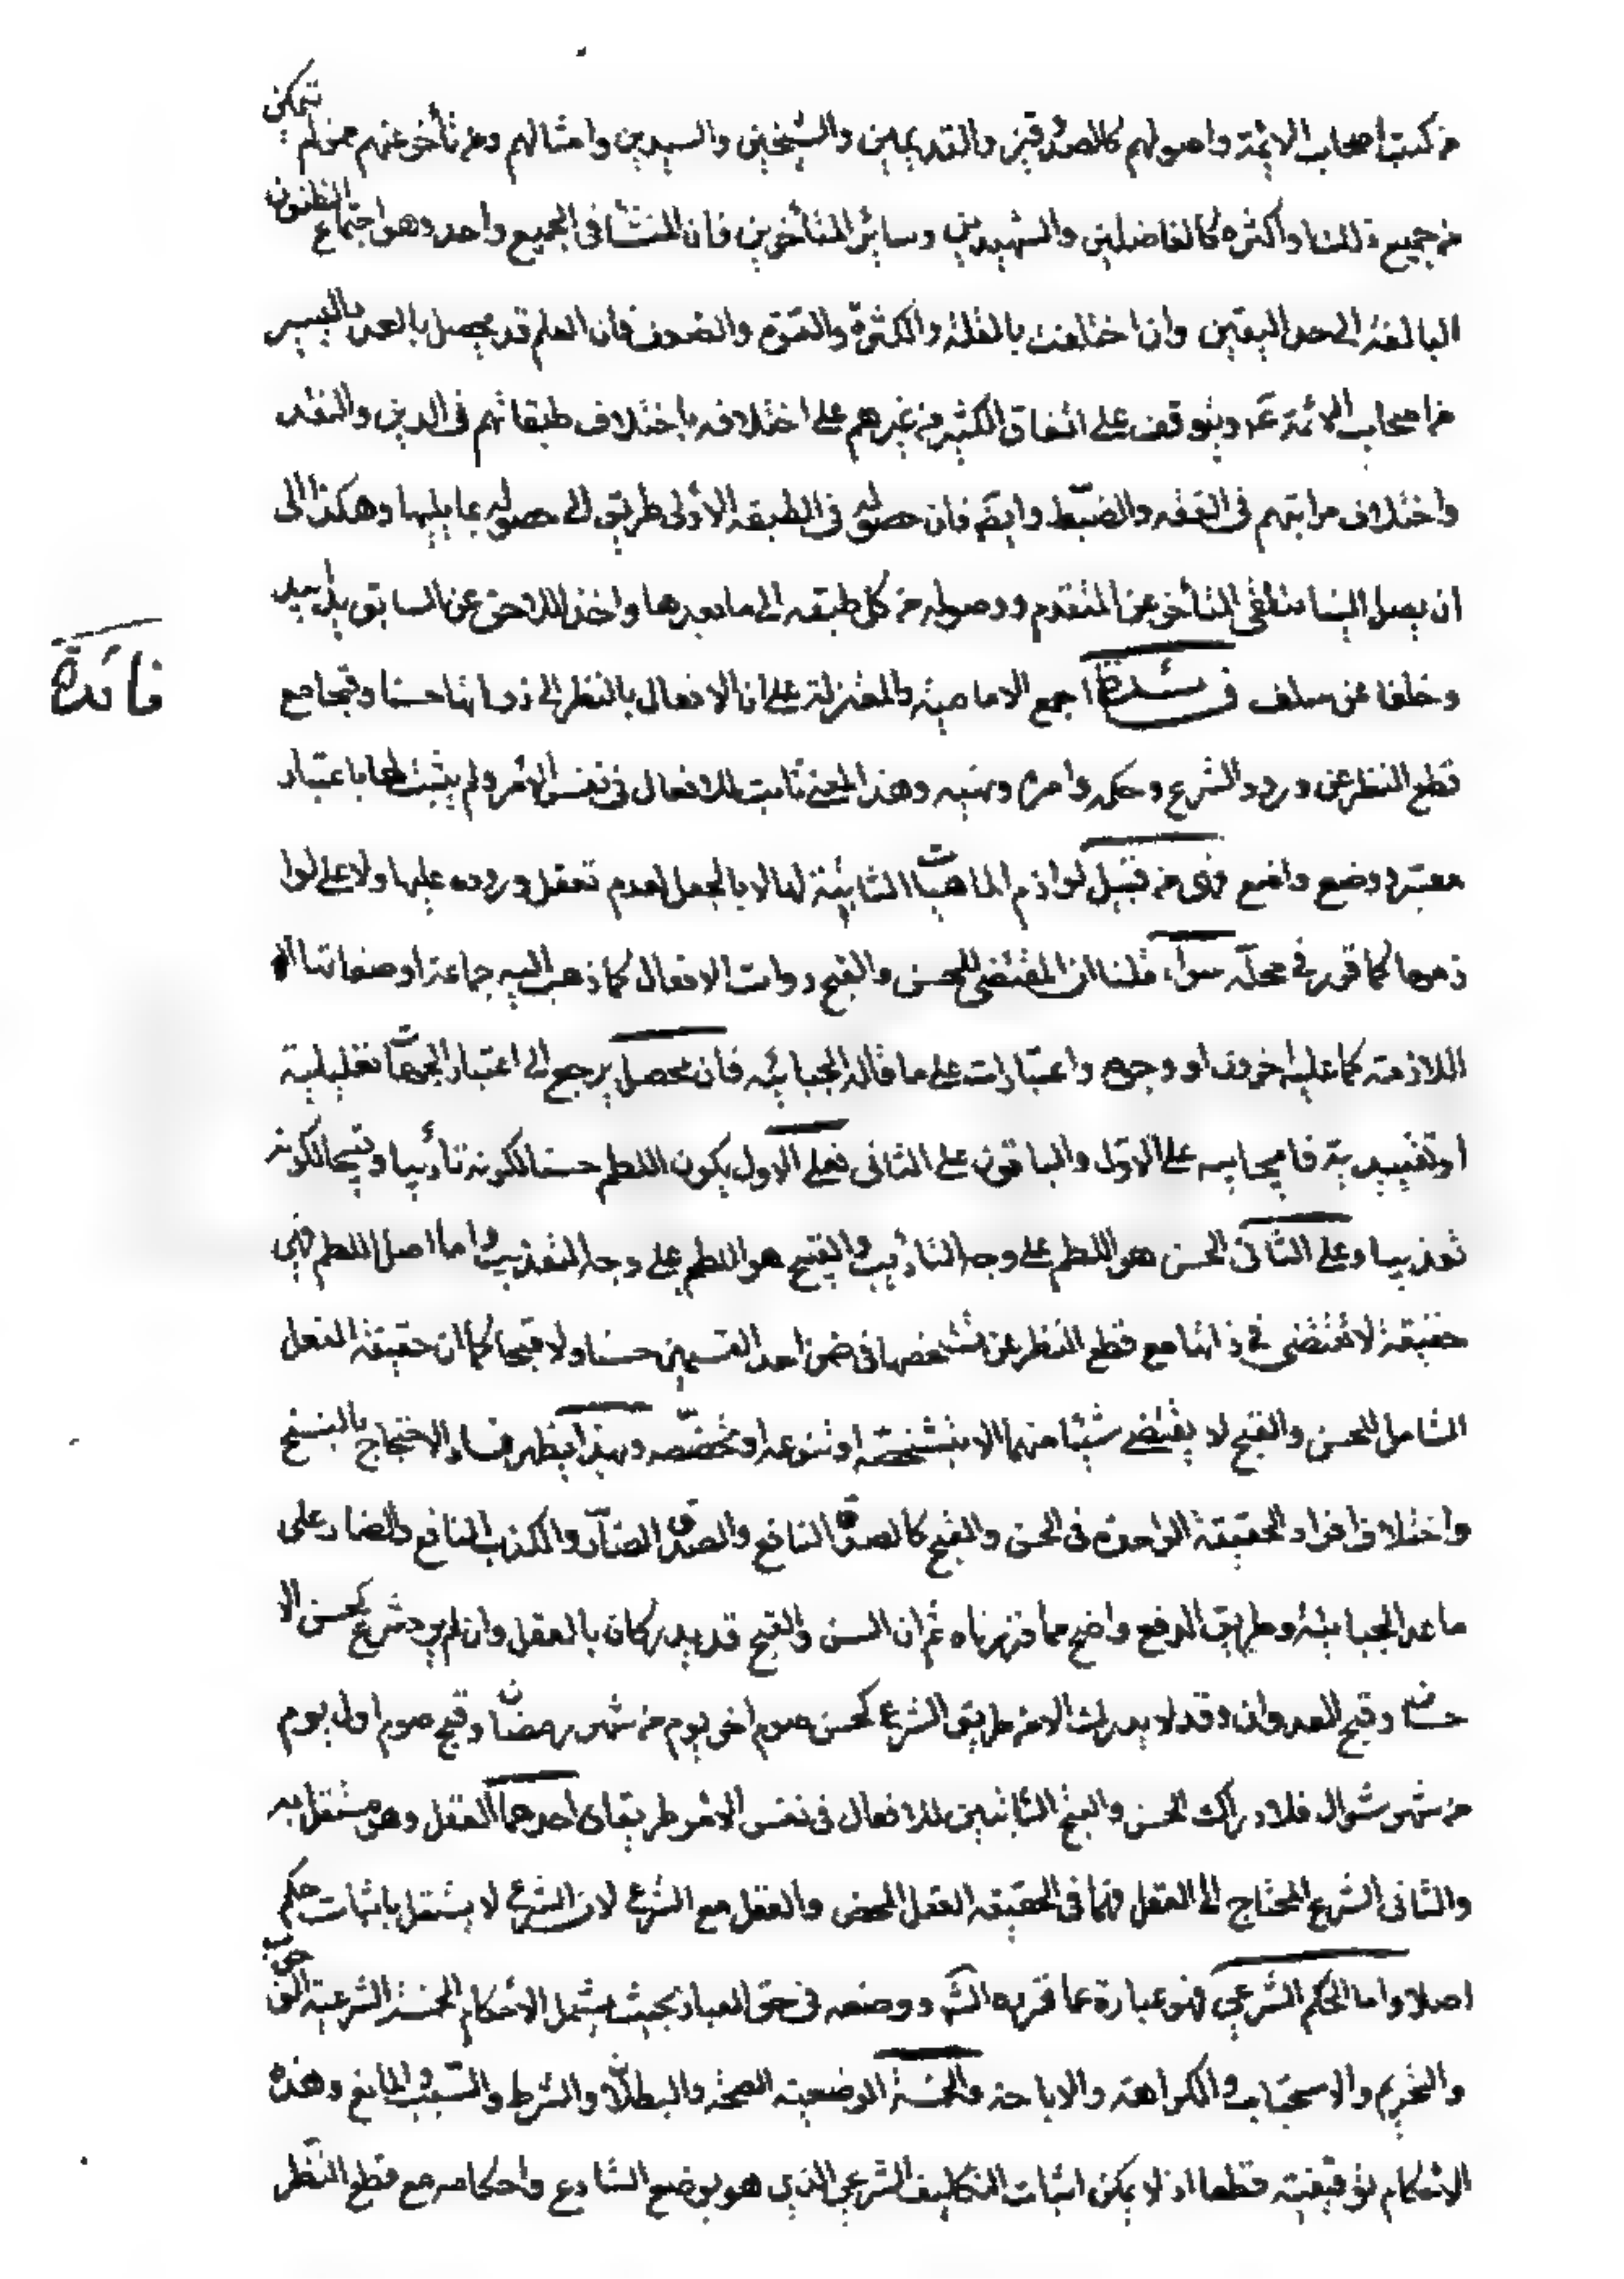 من كتب اصحاب الائمة واصولهم كالصدوقين والقديمين والشيخين والسيدين وامثالهم ومن تأخر عنهم ممن لم يتمكن
من جميع ذلك او اكثره كالفاضلين والشهيدين وسائر المتأخرين فان المنشأ فى الجميع واحد وهو اجتماع الظنون
البالغة الى حد اليقين وان اختلفت بالقلة والكثرة والقوة والضعف فان العلم قد يحصل بالعدد اليسير
من اصحاب الائمة عم ويتوقف على اتفاق الكثير من غيرهم على اختلافه باختلاف طبقاتهم فى الدين والتقدم
واختلاف مراتبهم فى التفقه والضبط وايضا فان حصوله فى الطبقة الأولى طريق الى حصوله بما يليها وهكذا الى
ان يصل الينا متلقى المتأخر عن المتقدم ووصوله من كل طبقه الى ما بعدها واخذ اللاحق عن السابق يدا بيد
وخلفا عن سلف فائدة اجمع الامامية والمعتزلة على ان الافعال بالنظر الى ذواتها حسنا وقبحا مع
قطع النظر عن ورود الشرع وحكمه وامره ونهيه وهذا المعنى ثابت للافعال فى نفس الأمر ولم يثبت لها باعتبار
معتبر ووضع واضع فهى من قبيل لوازم الماهيات الثابتة لها لا بالجعل لعدم تعقل وروده عليها ولا على لوا
زمها كما قرر فى محله سواء قلنا ان المقتضى للحسن والقبح ذوات الافعال كما ذهب اليه جماعة او صفاتها
اللازمة كما عليه اخرون او وجوه واعتبارات على ما قاله الجبائيه فان محصله يرجع الى اعتبار الجهات تعليلية
او تقييدية فالجبائيه على الأول والباقون على الثانى فعلى الاول يكون اللطم حسنا لكونه تأديبا وقبيحا لكونه
تعذيبا وعلى الثانى الحسن هو اللطم على وجه التأديب والقبيح هو اللطم على وجه التعذيب واما اصل اللطم فهى
حقيقة لا تقتضى فى ذاتها مع قطع النظر عن تشخصها فى ضمن احد القسمين حسنا ولا قبحا كما ان حقيقة الفعل
الشامل للحسن والقبح لا يقتضى شيئا منهما الا بتشخصه او تنوعه او تخصصه وبهذا يظهر فساد الاحتجاج بالنسخ
واختلاف افراد الحقيقة الواحدة فى الحسن والقبح كالصدق النافع والصدق الضار والكذب النافع والضار على
ما عدا الجبائية وطريق الدفع واضح مما قررناه ثم ان الحسن والقبح قد يدركان بالعقل وان لم يرد شرع كحسن الا
حسان وقبح العدوان وقد لا يدرك الا من طريق الشرع كحسن صوم اخر يوم من شهر رمضان وقبح صوم اول يوم
من شهر شوال فلادراك الحسن والقبح الثابتين للافعال فى نفس الأمر طريقان احدهما العقل وهو مستقل به
والثانى الشرع المحتاج الى العقل فهما فى الحقيقه العقل المحض والعقل مع الشرع لان الشرع لا يستقل باثبات حكم
اصلا واما الحكم الشرعى فهو عبارة عما قرره الشارع ووضعه فى حق العباد بحيث يشمل الأحكام الخمسة الشرعية الوجوب
والتحريم والاستحباب والكراهة والاباحة والخمسة الوضعية الصحة والبطلان والشرط والسبب والمانع وهذه
الأحكام توقيفية قطعا اذ لا يمكن اثبات التكليف الشرعى الذى هو بوضع الشارع واحكامه مع قطع النظر
فائدة